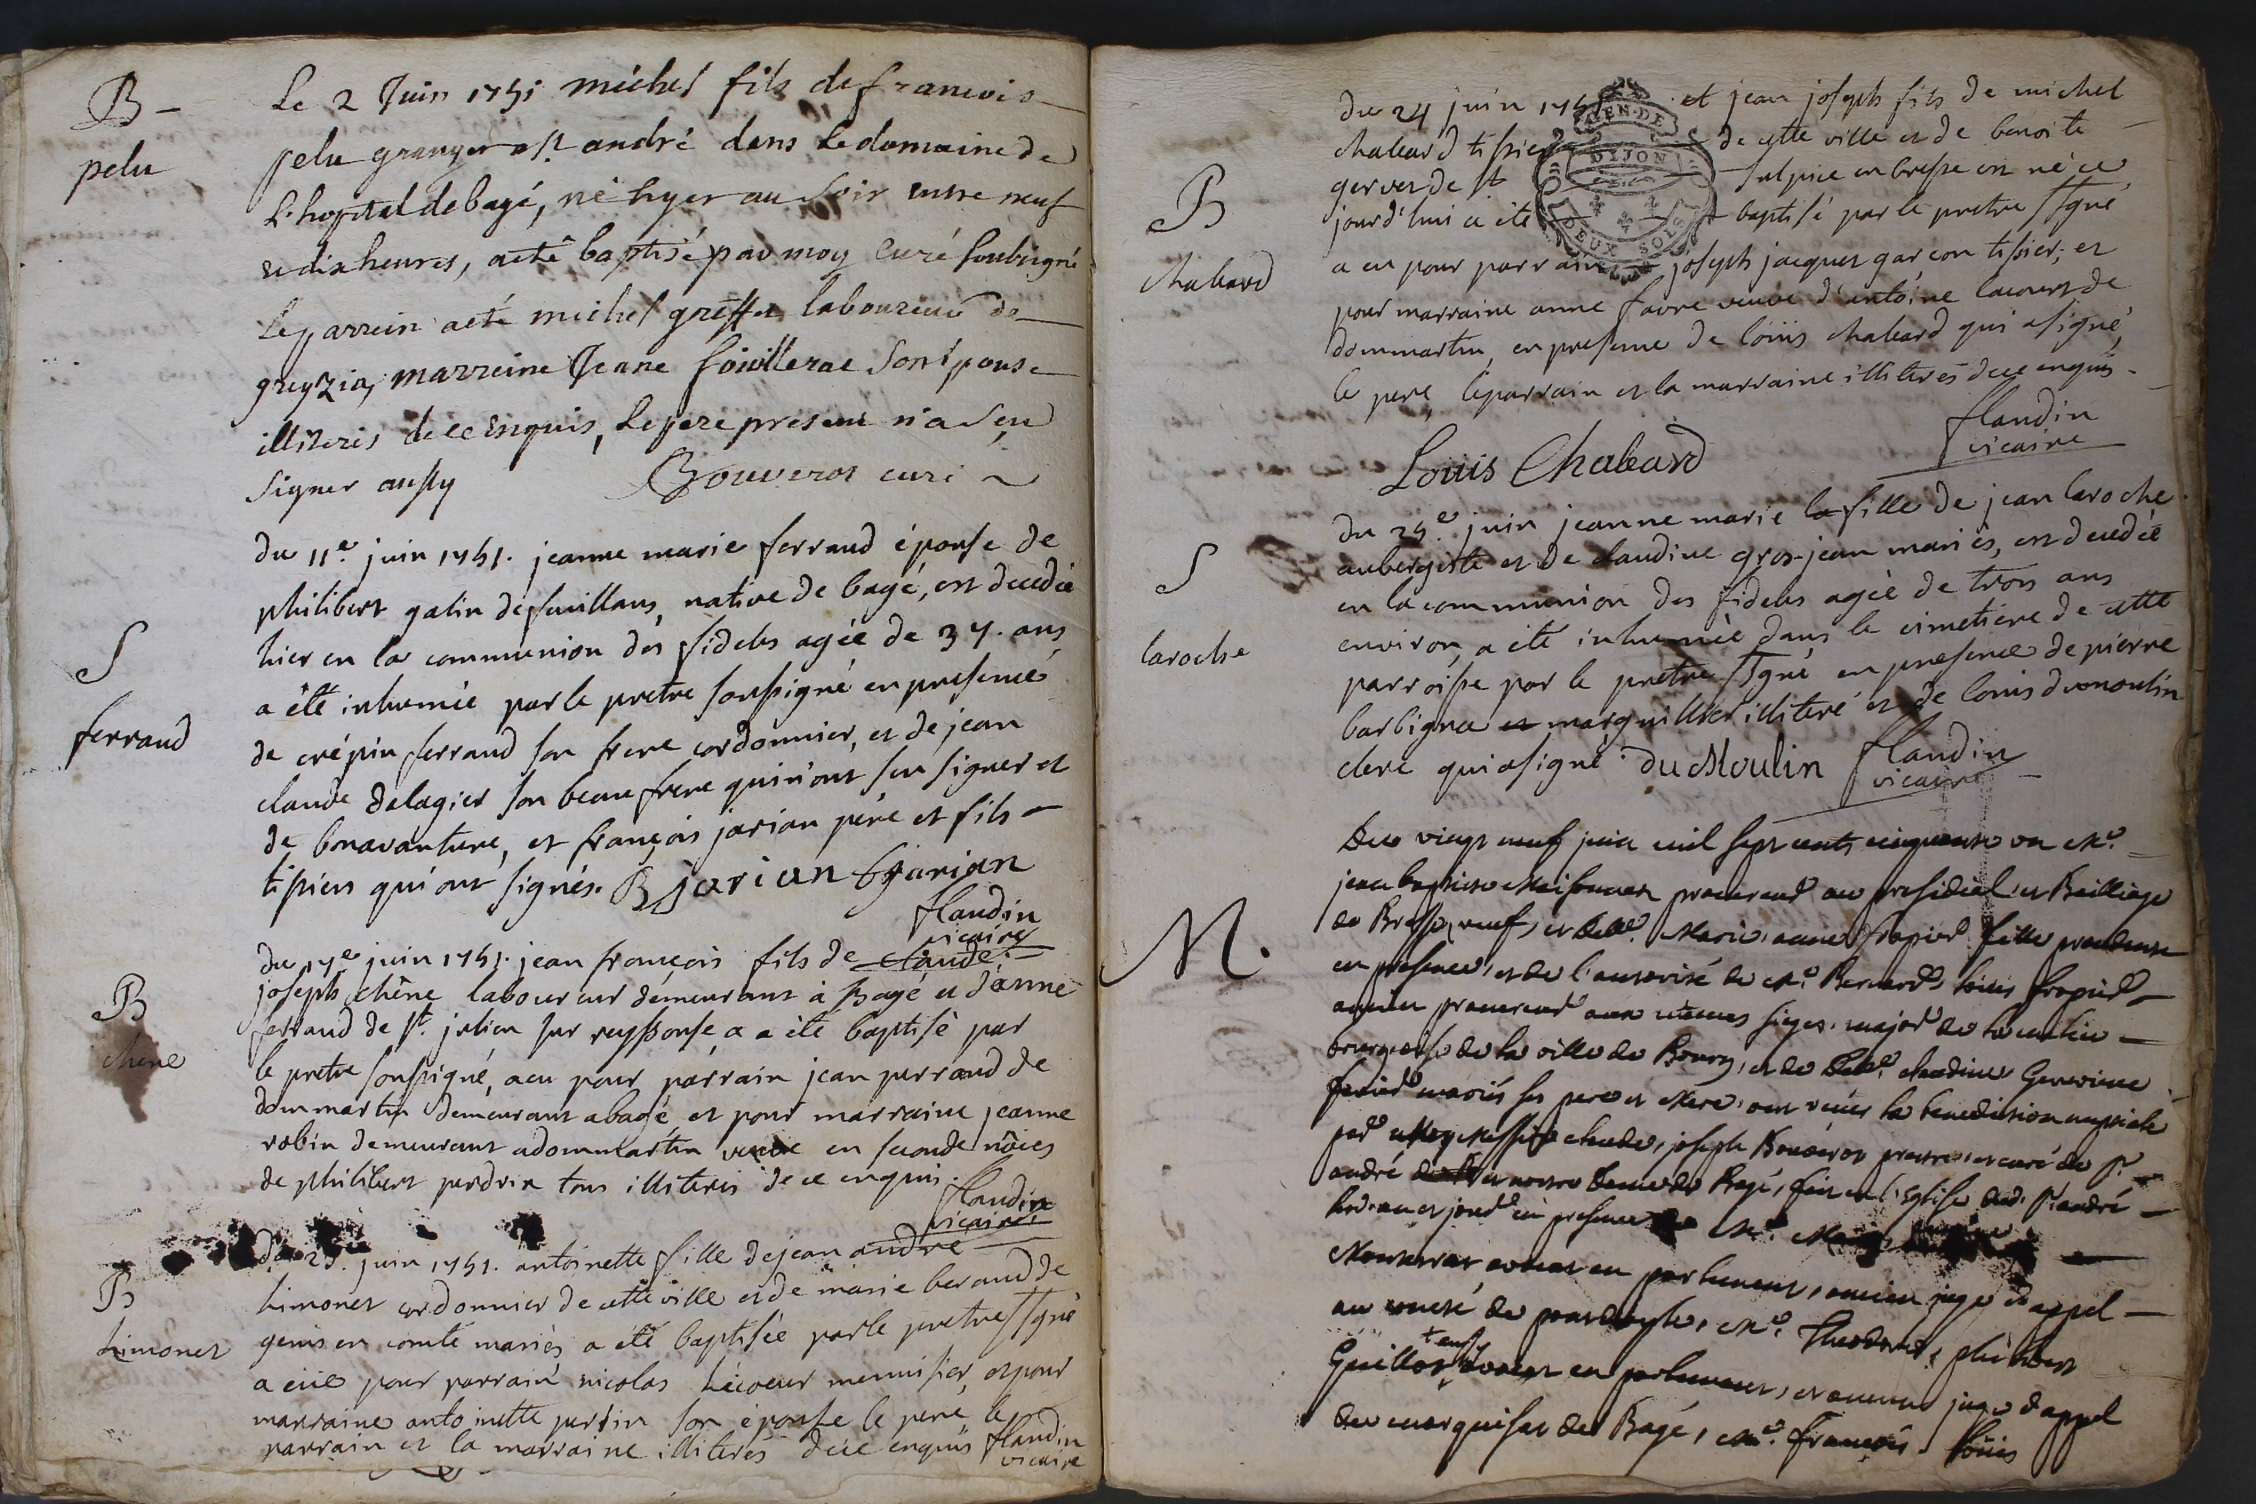 B
pelu
Le 2 Juin 1751 michel fils de francois
pelu granger a st andré dans le domaine de
L'hopital de bagé, né hyer au soir entre neuf
et dix heures, a eté baptisé par moy curé soubsigné
le parrein a eté michel greffet laboureur de
greyzia, marreine Jeane foüillerae son epouse
illiterés de ce Enquis, Le pere present n'a seu
signer aussy Bouverot curé
S
ferraud
du 11e juin 1751. jeanne marie ferraud épouse de
philibert galin de feuillans, native de bagé, est decedée
hier en la communion des fideles agée de 37. ans
a êté inhumée par le pretre soussigné en presence
de crépin ferraud son frere cordonnier, et de jean
claude delagier son beau frere qui n'ont seu signer et
de bonavanture, et françois jarian pére et fils
tissiers qui ont signés. B jarian f jarian
flandin
vicaire
B
chene
du 17e juin 1751. jean françois fils de claude
joseph chêne laboureur demeurant à Bagé et d'anne
ferraud de st. julien sur reyssouse a a été baptisé par
le pretre soussigné, a eu pour parrain jean perraud de
dommartin demeurant a bagé, et pour marraine jeanne
robin demeurant a dommartin veuve en seconde nôces
de philibert perdrix tous illiterés de ce enquis.
flandin
vicaire
B
Limonet
du 23. juin 1751. antoinette fille de jean andré
Limonet cordonnier de cette ville et de marie beraud de
genis en comté mariés a été baptisée par le pretre ssgné
a eüe pour parrain nicolas Lécoeur mennisier, et pour
marraine antoinette perrin son épouse le pere le
parrain et la marraine illiterés de ce enquis flandin
vicaire
B
chabard
du 24 juin 1751 et jean joseph fils de michel
chabard tissier de cette ville et de benoite
gerves de st sulpice en bresse est né ce
jourd'hui a été baptisé par le pretre ssgné
a eu pour parrain joseph jacquet garcon tissier, et
pour marraine anne favre veuve d'antoine lacourt de
dommartin, en presence de loüis chabard qui a signé,
le pere, le parrain et la marraine illiterés de ce enquis
flandin
vicaire
Louis Chabard
GEN. DE
DIJON
DEUX SOLS
S
laroche
du 25e juin jeanne marie la fille de jean laroche
aubergiste et de claudine gros-jean mariés, est decedée
en la communion des fideles agée de trois ans
environ, a été inhumée dans le cimetiere de cette
parroisse par le pretre ssgné en presence de pierre
barbigna et marguillier illiteré et de louis dumoulin
clerc qui a signé. Du Moulin flandin
vicaire
M.
Du vingt neuf juin mil sept cents cinquante un Mr.
jean baptiste procureur au presidial et Bailliage
de Bresse, veuf, et delle. Marie anne frapier fille
en presence, et de l'autorité de Mr. Bernard loüis frapier
ancien procureur aux mêmes sieges, major de la milice
bourgeoise de la ville de Bourg, et de delle. claudine Genevieve
mariés ses pere et Mere, ont reçus la benediction nuptiale
par Messire claude, joseph Bouverot prestre, et curé de St.
andré et notre dame de Bagé, fait en l'Eglise dud. St andré
led. an et jour en presence de Mr.
avocat en parlement, ancien juge d'appel
au comté de pont de veyle, Mr. Theodore, philibert
Guillot avocat en parlement, et ancien juge d'appel
du marquisat de Bagé, Mr. François Loüis